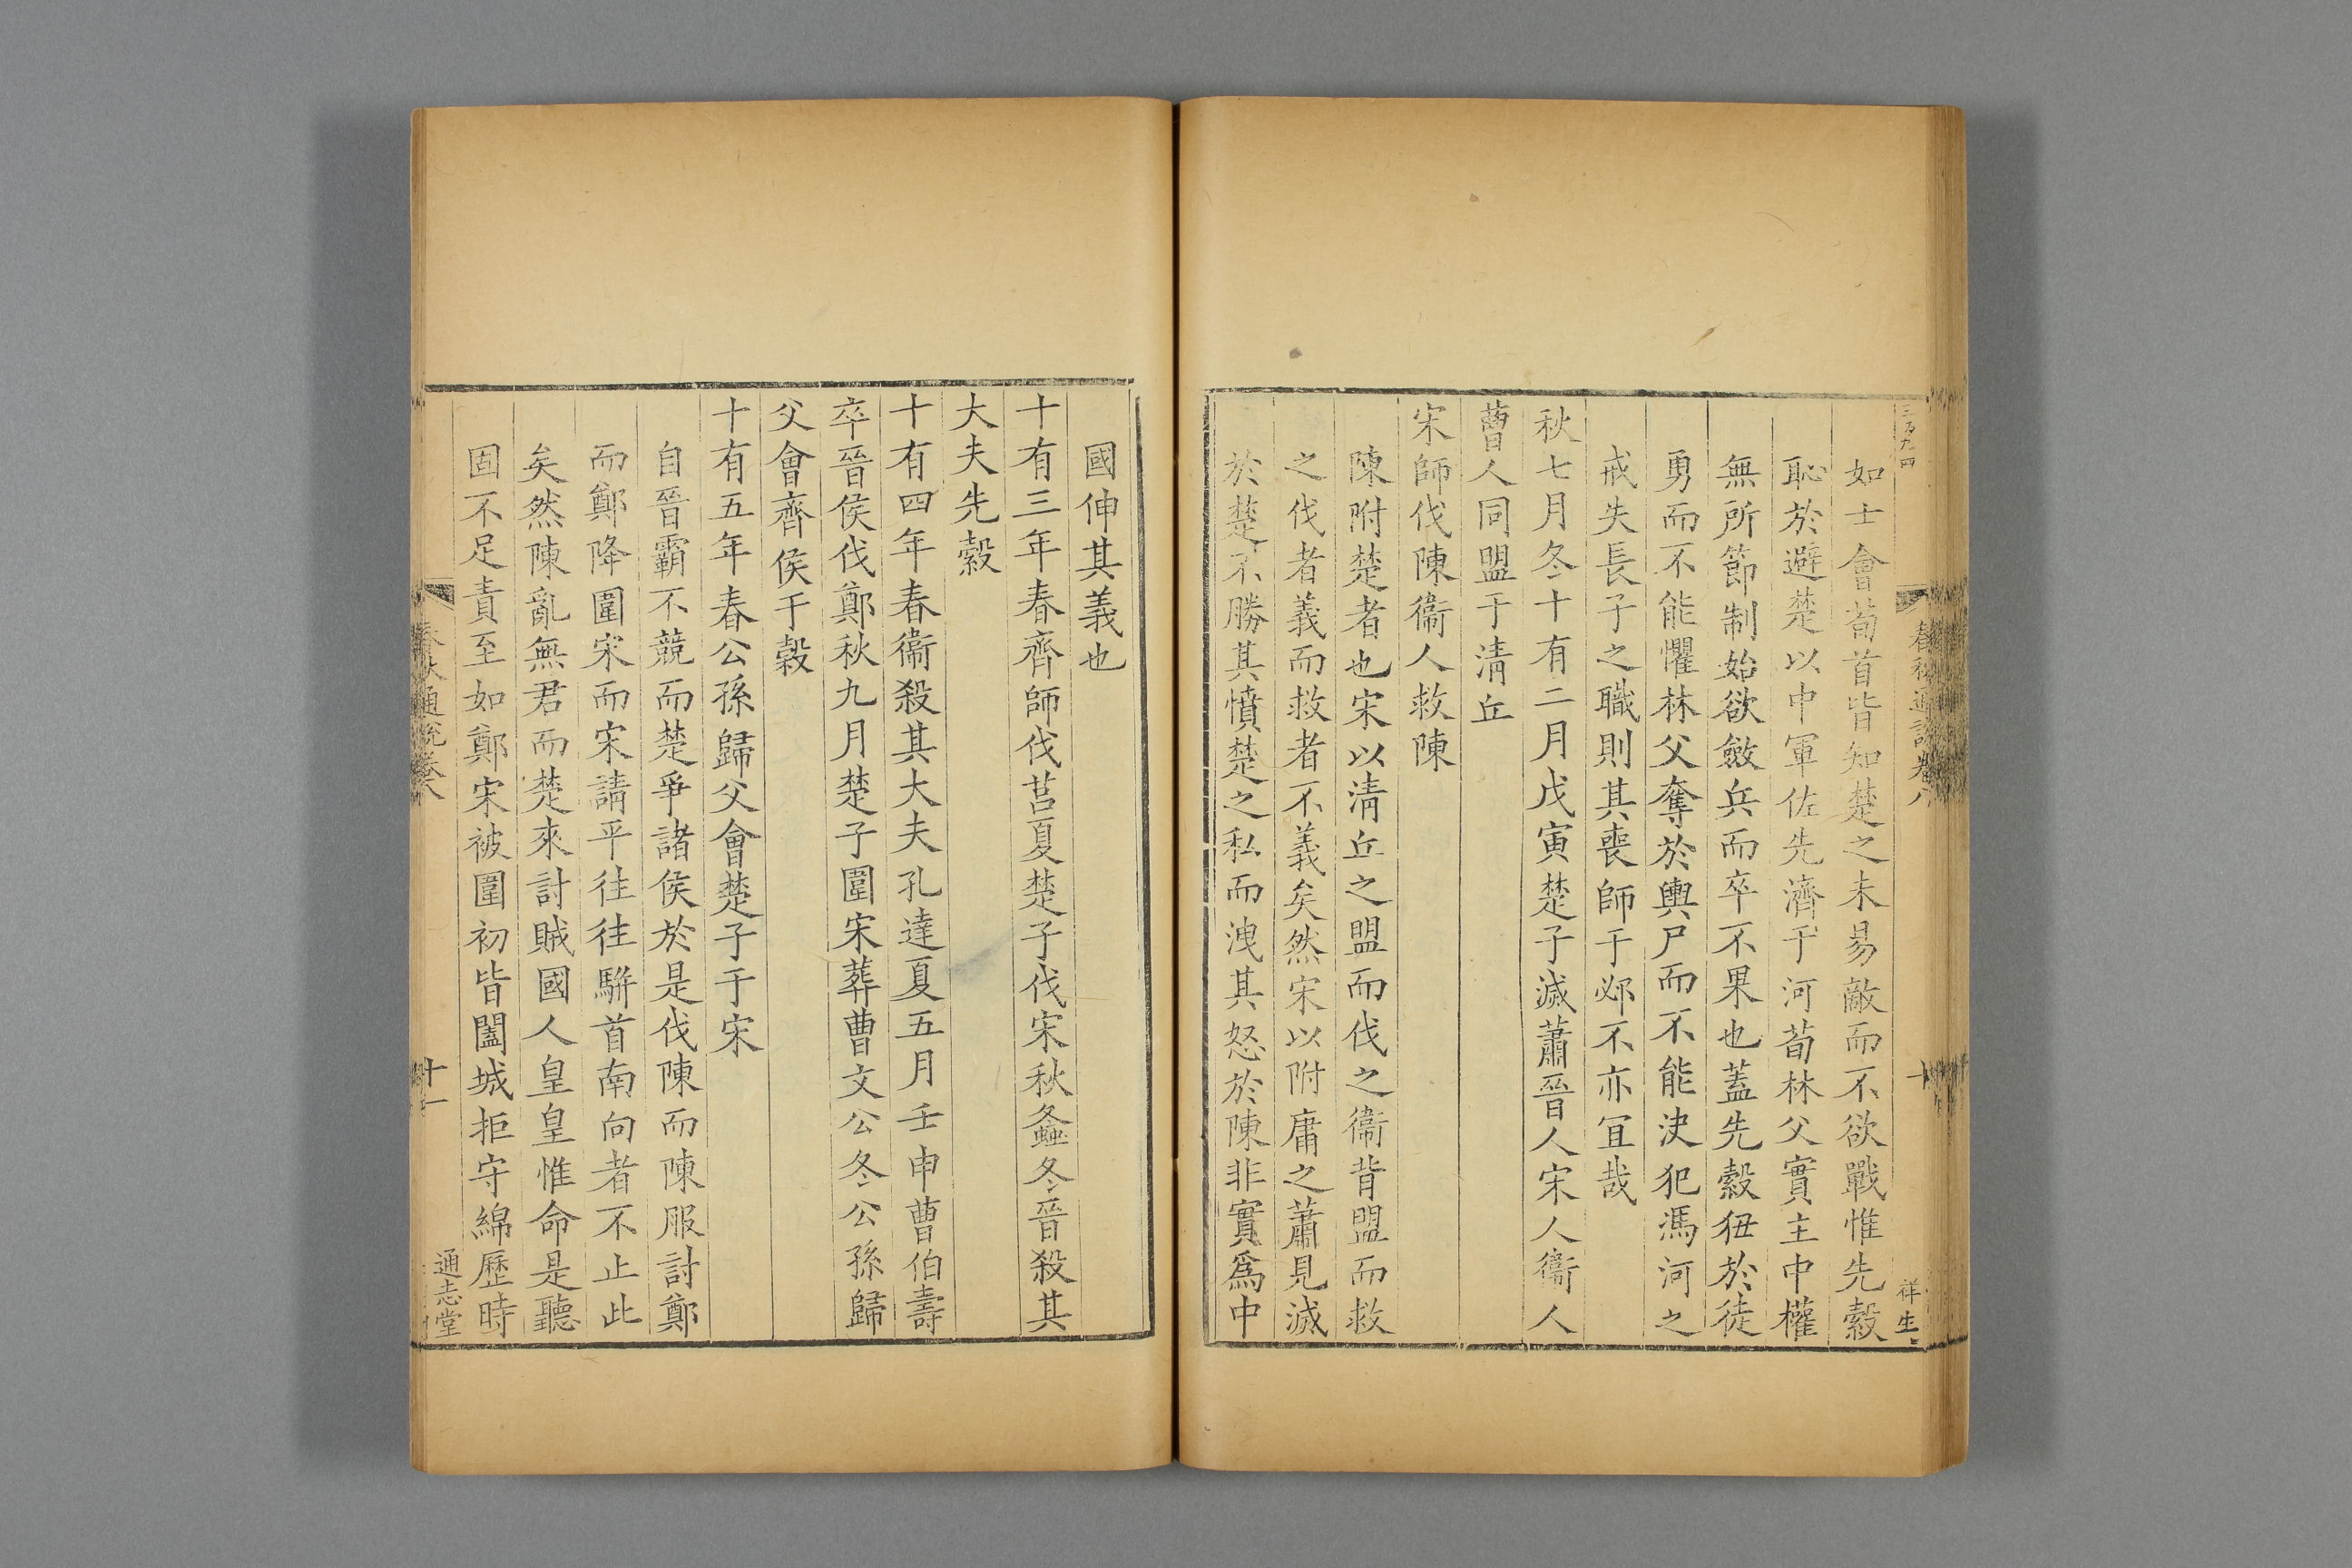 三百九四
春秋通說卷八
十
祥生
如士會荀首皆知楚之未易敵而不欲戰惟先縠
恥於避楚以中軍佐先濟于河荀林父實主中權
無所節制始欲斂兵而卒不果也蓋先縠狃於徒
勇而不能懼林父奪於輿尸而不能決犯馮河之
戒失長子之職則其喪師于邲不亦宜哉
秋七月冬十有二月戊寅楚子滅蕭晉人宋人衞人
曹人同盟于清丘
宋師伐陳衞人救陳
陳附楚者也宋以清丘之盟而伐之衞背盟而救
之伐者義而救者不義矣然宋以附庸之蕭見滅
於楚不勝其憤楚之私而洩其怒於陳非實爲中
國伸其義也
十有三年春齊師伐莒夏楚子伐宋秋螽冬晉殺其
大夫先縠
十有四年春衞殺其大夫孔達夏五月壬申曹伯壽
卒晉侯伐鄭秋九月楚子圍宋葬曹文公冬公孫歸
父會齊侯于穀
十有五年春公孫歸父會楚子于宋
自晉霸不競而楚爭諸侯於是伐陳而陳服討鄭
而鄭降圍宋而宋請平往往駢首南向者不止此
矣然陳亂無君而楚來討賊國人皇皇惟命是聽
固不足責至如鄭宋被圍初皆闔城拒守綿歷時
春秋通說卷八
十一
通志堂